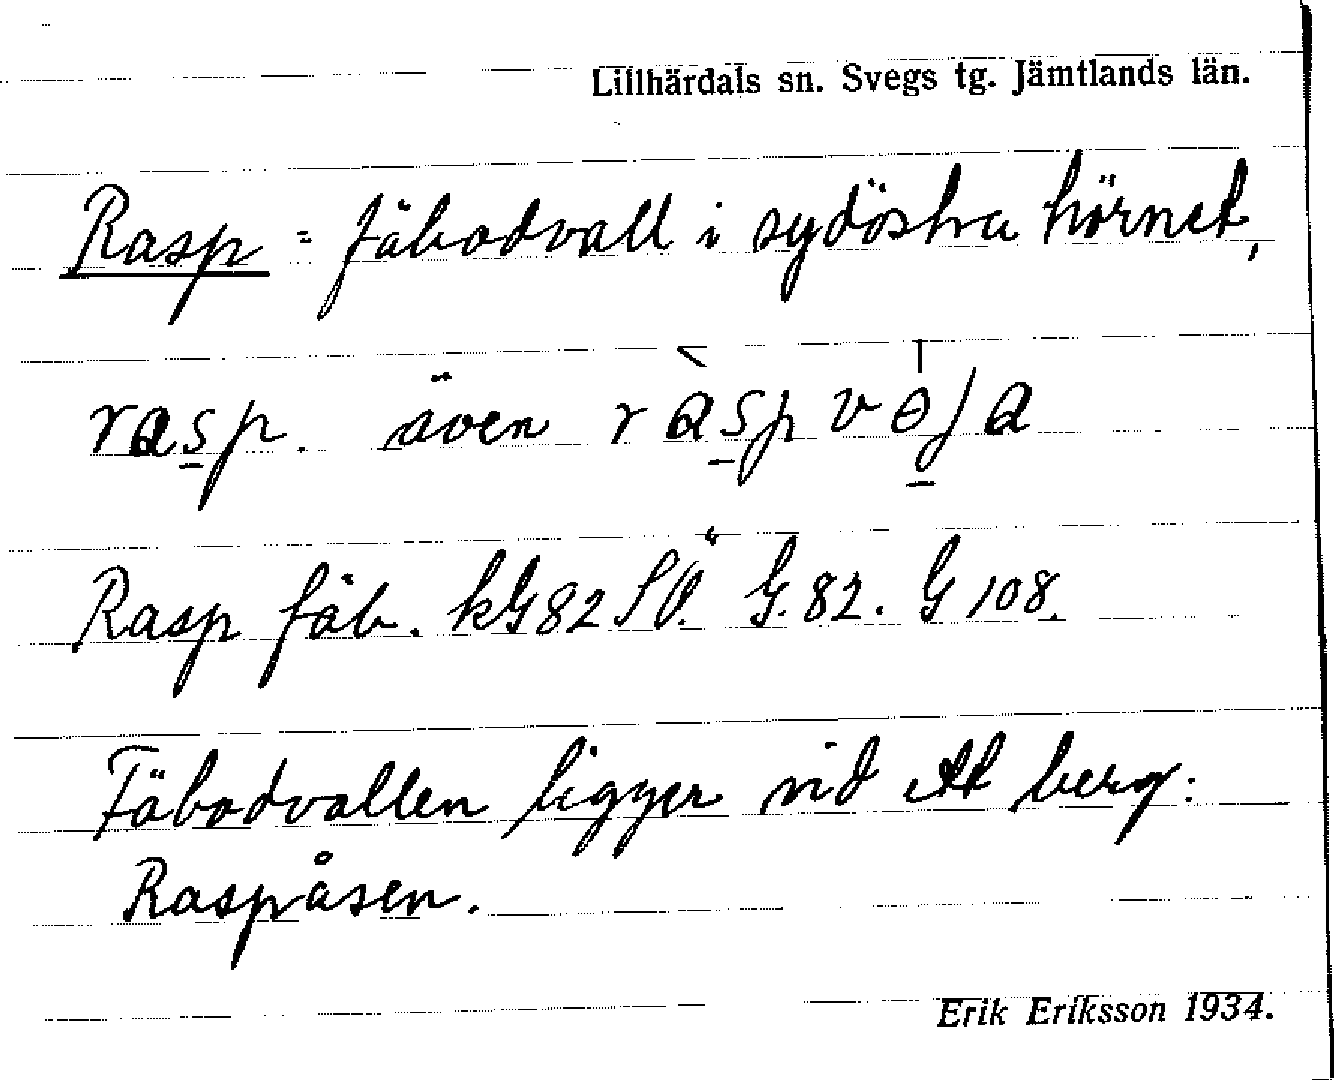 Lillhärdals sn. Svegs tg. Jämtlands län.
Rasp = fäbodvall i sydöstra hörnet,
rasp. även
Rasp fäb. kG82 SÖ. G.82. G 108.
Fäbodvallen ligger vid ett berg:
Raspåsen.
Erik Eriksson 1934.